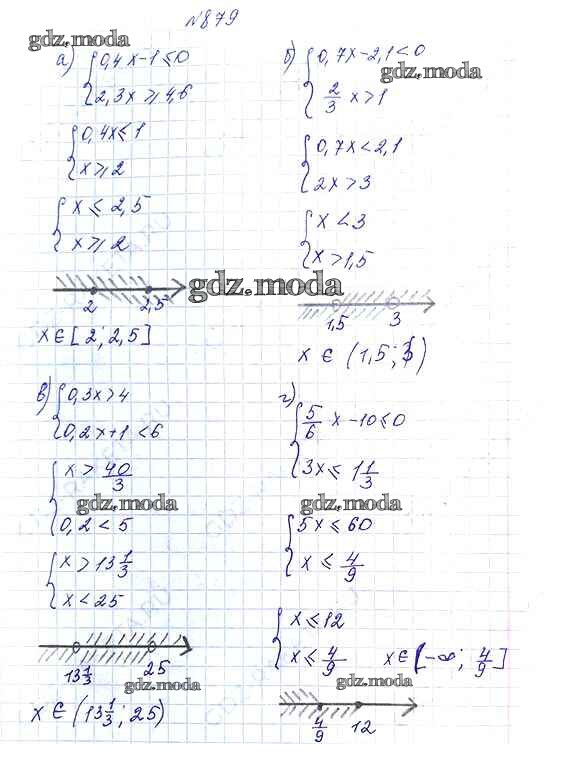 №879
gdz.moda
а) { 0,4x-1≤0
2,3x ≥ 4,6
{ 0,4x≤1
x≥2
{ x ≤ 2,5
x≥2
2 2,5
x∈[2; 2,5]
б) { 0,7x-2,1<0
gdz.moda
2/3 x>1
{ 0,7x<2,1
2x>3
{ x<3
x>1,5
gdz.moda
1,5 3
x ∈ (1,5; 3)
в) { 0,3x>4
0,2x+1<6
{ x > 40/3
gdz.moda
0,2<5
{ x>13 1/3
x<25
13 1/3 25
gdz.moda
x ∈ (13 1/3; 25)
г) { 5/6 x-10≤0
3x≤ 1 1/3
gdz.moda
{ 5x≤60
x ≤ 4/9
{ x≤12
x≤ 4/9 x∈[-∞; 4/9]
gdz.moda
4/9 12